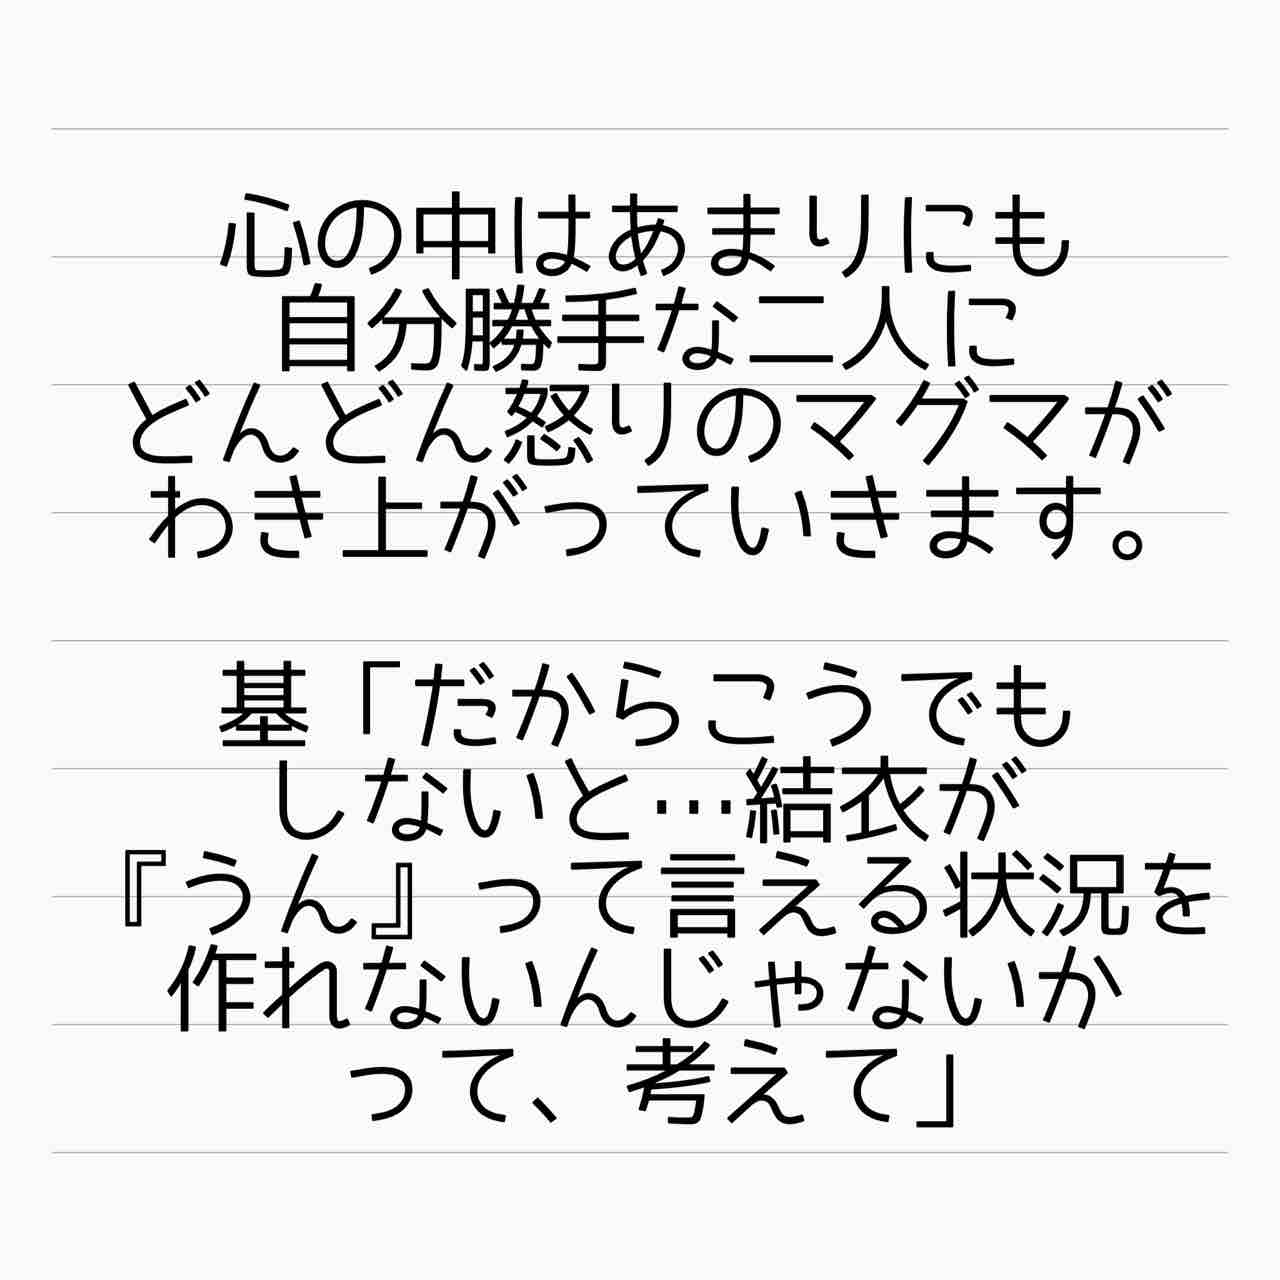 心の中はあまりにも
自分勝手な二人に
どんどん怒りのマグマが
わき上がっていきます。
基「だからこうでも
しないと…結衣が
『うん』って言える状況を
作れないんじゃないか
って、考えて」